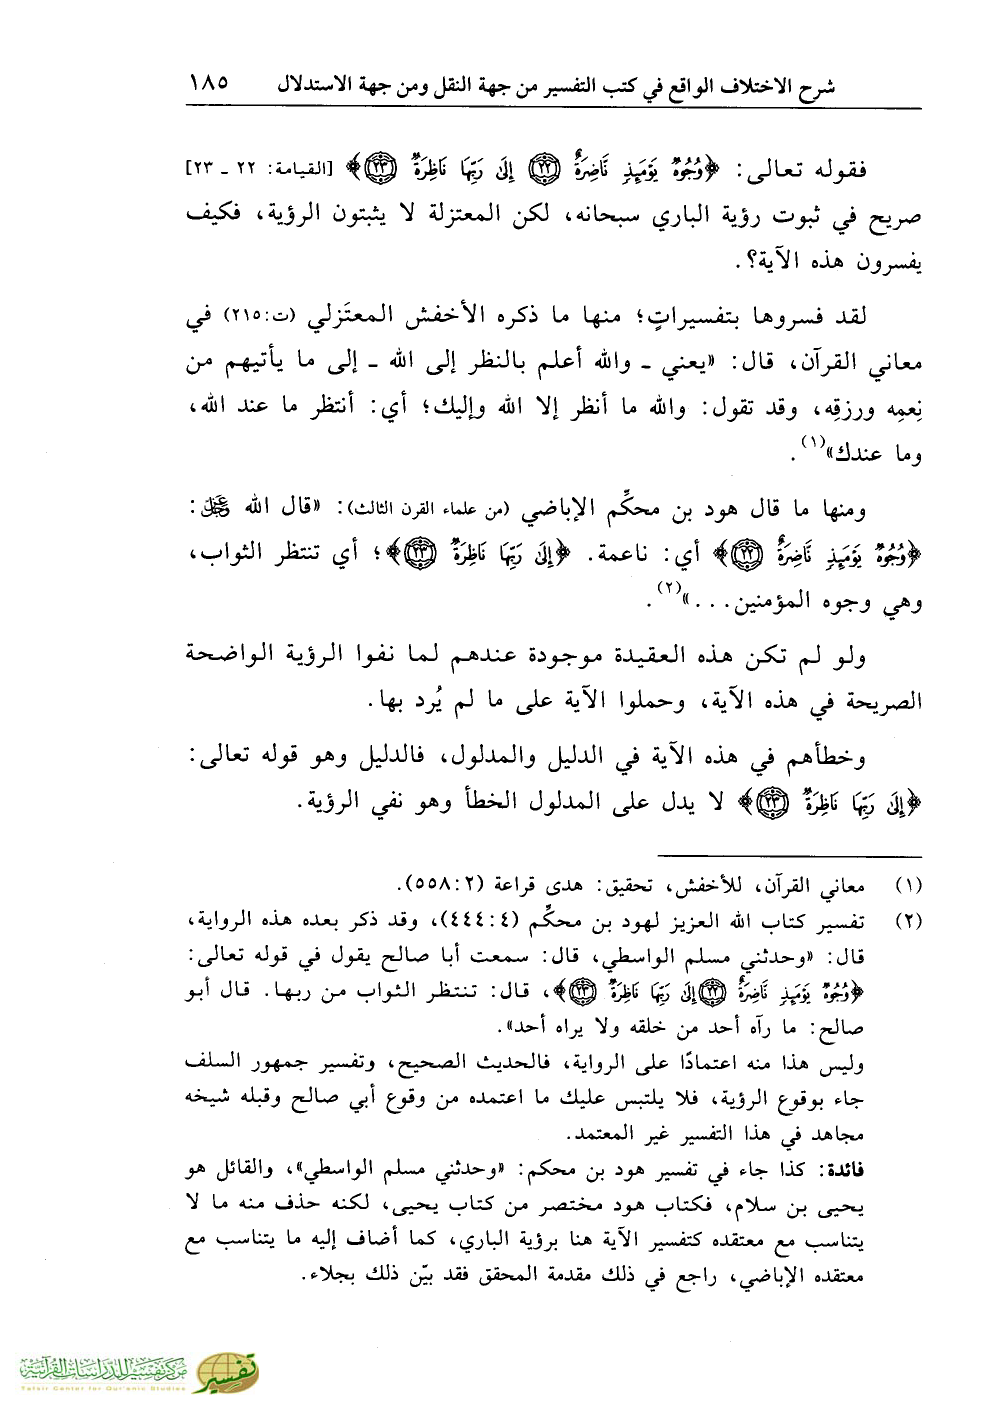 شرح الاختلاف الواقع في كتب التفسير من جهة النقل ومن جهة الاستدلال ١٨٥
فقوله تعالى: ﴿وُجُوهٌ يَوْمَئِذٍ نَّاضِرَةٌ ﴿٢٢﴾ إِلَىٰ رَبِّهَا نَاظِرَةٌ ﴿٢٣﴾﴾ [القيامة: ٢٢ ـ ٢٣]
صريح في ثبوت رؤية الباري سبحانه، لكن المعتزلة لا يثبتون الرؤية، فكيف
يفسرون هذه الآية؟.
لقد فسروها بتفسيراتٍ؛ منها ما ذكره الأخفش المعتَزلي (ت:٢١٥) في
معاني القرآن، قال: «يعني ـ والله أعلم بالنظر إلى الله ـ إلى ما يأتيهم من
نِعمِه ورزقِه، وقد تقول: والله ما أنظر إلا الله وإليك؛ أي: أنتظر ما عند الله،
وما عندك»(١).
ومنها ما قال هود بن محكِّم الإباضي (من علماء القرن الثالث): «قال الله عَزَّوَجَلَّ:
﴿وُجُوهٌ يَوْمَئِذٍ نَّاضِرَةٌ ﴿٢٢﴾﴾ أي: ناعمة. ﴿إِلَىٰ رَبِّهَا نَاظِرَةٌ ﴿٢٣﴾﴾؛ أي تنتظر الثواب،
وهي وجوه المؤمنين...»(٢).
ولو لم تكن هذه العقيدة موجودة عندهم لما نفوا الرؤية الواضحة
الصريحة في هذه الآية، وحملوا الآية على ما لم يُرد بها.
وخطأهم في هذه الآية في الدليل والمدلول، فالدليل وهو قوله تعالى:
﴿إِلَىٰ رَبِّهَا نَاظِرَةٌ ﴿٢٣﴾﴾ لا يدل على المدلول الخطأ وهو نفي الرؤية.
(١) معاني القرآن، للأخفش، تحقيق: هدى قراعة (٢:٥٥٨).
(٢) تفسير كتاب الله العزيز لهود بن محكِّم (٤:٤٤٤)، وقد ذكر بعده هذه الرواية،
قال: «وحدثني مسلم الواسطي، قال: سمعت أبا صالح يقول في قوله تعالى:
﴿وُجُوهٌ يَوْمَئِذٍ نَّاضِرَةٌ ﴿٢٢﴾ إِلَىٰ رَبِّهَا نَاظِرَةٌ ﴿٢٣﴾﴾، قال: تنتظر الثواب من ربها. قال أبو
صالح: ما رآه أحد من خلقه ولا يراه أحد».
وليس هذا منه اعتمادًا على الرواية، فالحديث الصحيح، وتفسير جمهور السلف
جاء بوقوع الرؤية، فلا يلتبس عليك ما اعتمده من وقوع أبي صالح وقبله شيخه
مجاهد في هذا التفسير غير المعتمد.
فائدة: كذا جاء في تفسير هود بن محكم: «وحدثني مسلم الواسطي»، والقائل هو
يحيى بن سلام، فكتاب هود مختصر من كتاب يحيى، لكنه حذف منه ما لا
يتناسب مع معتقده كتفسير الآية هنا برؤية الباري، كما أضاف إليه ما يتناسب مع
معتقده الإباضي، راجع في ذلك مقدمة المحقق فقد بيّن ذلك بجلاء.
مركز تفسير للدراسات القرآنية تفسير
Tafsir Center for Qur'anic Studies